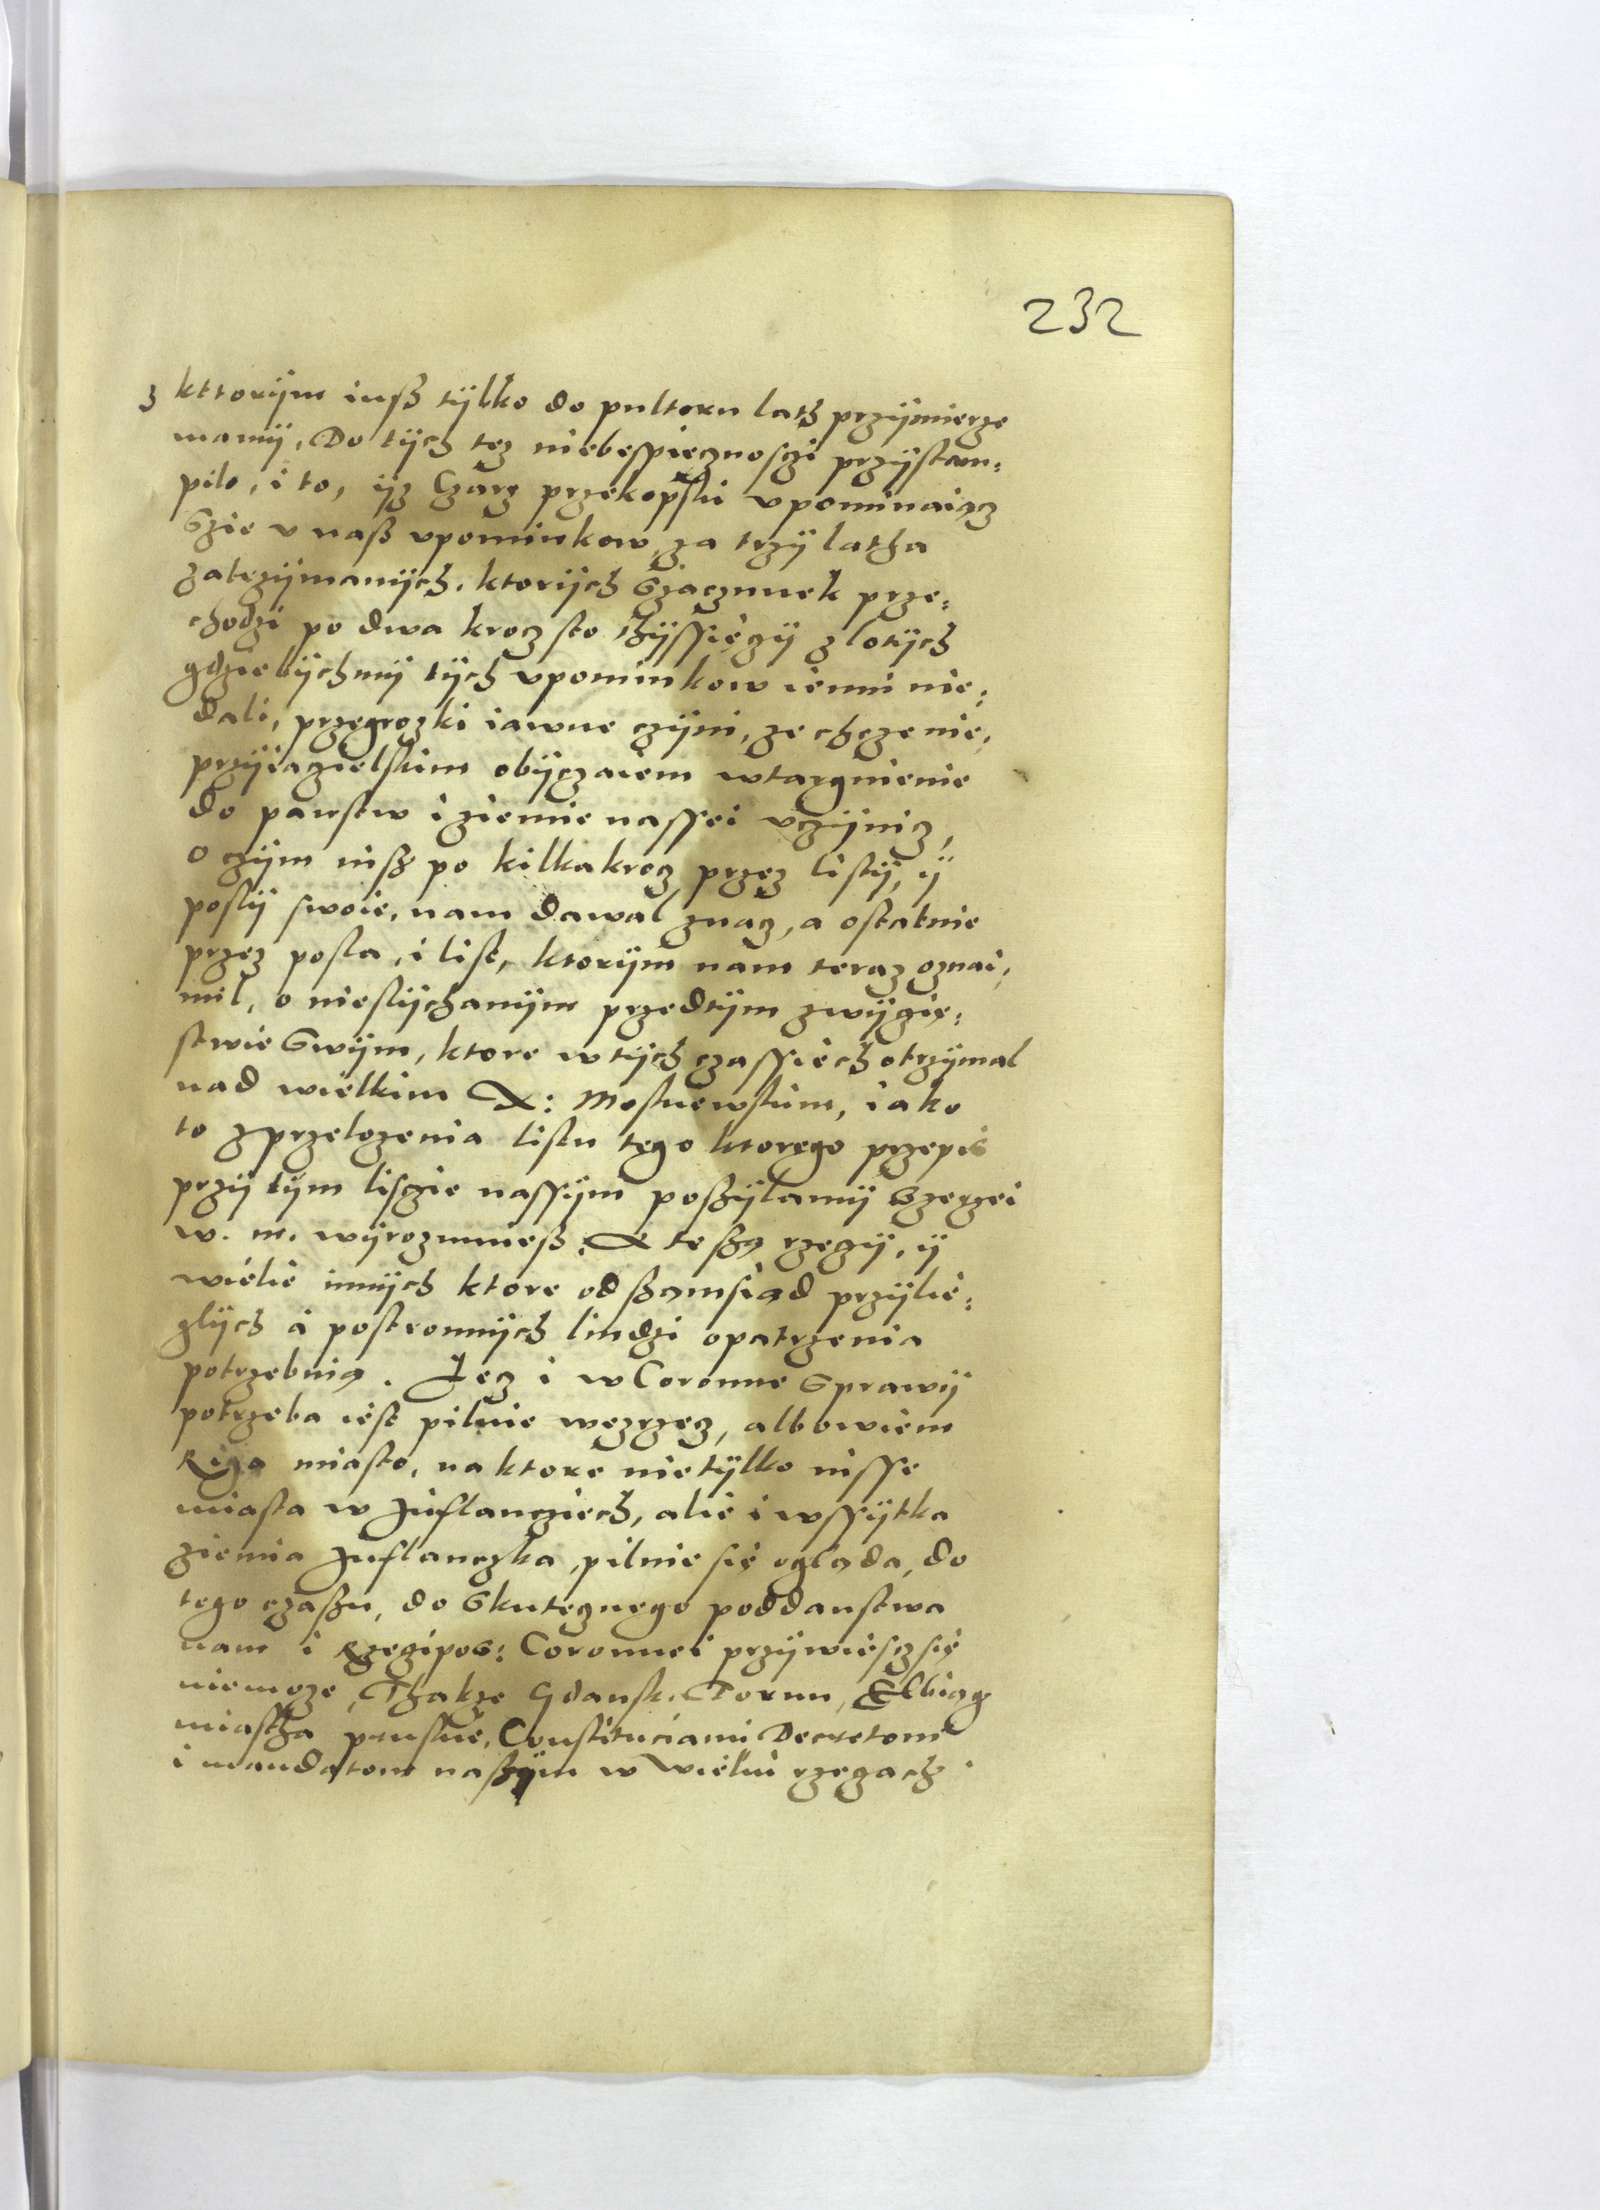 232
z kttorÿm iusz tÿlko do pultoru lath przÿmierze
mamÿ, Do tÿch tez niebespiecznosczi przÿstam:
pilo, i to, ÿz Czarz przekopski vpominaiącz
Szie v nasz vpominkow, za trzÿ latha
zatrzÿmanÿch, ktorÿch Szaczunek prze:
chodzi po dwa krocz sto thÿssięczÿ zlotÿch
gdziebÿchmÿ tÿch vpominkow iemu nie:
dali, przegrozki iawne czÿni, ze chcze nie:
przÿiaczielskim obÿczaiem wtargnienie
do panstw i ziemie nassei vczÿnicz,
o czÿm iusz po kilkakrocz przez listÿ, ÿ
poslÿ swoie, nam dawal znacz, a ostatnie
przez posla, i list, ktorÿm nam teraz oznai:
mil, o nieslÿchanÿm przedtÿm zwÿczię:
stwie Swÿm, ktore w tÿch czassiech otrzÿmal
nad wielkim X: Moskiewskim, iako
to z przelozenia listu tego ktorego przepis
przÿ tÿm lisczie nassÿm poszÿlamÿ Szerzei
w. m. wÿrozumiesz. A te szą rzeczÿ, ÿ
wielie innÿch ktore od szamsiad przÿlie:
glÿch a postronnÿch liudzi opatrzenia
potrzebuią. Lecz i w Coronne Sprawÿ
potrzeba iest pilnie wezrzecz, albowiem
Riga miasto, na ktore nietÿlko insse
miasta w Jnflancziech, alie i wssÿtka
ziemia Jnflanczka, pilnie się oglada, do
tego czaszu, do Skutecznego poddanstwa
nam i Rzeczipos: Coronnei przÿwiescz się
niemoze, Thakze Gdansk, Torun, Elbiąg
miastha pruskie, Constituciami Decretom
i mandatom naszÿm w wielui rzeczach